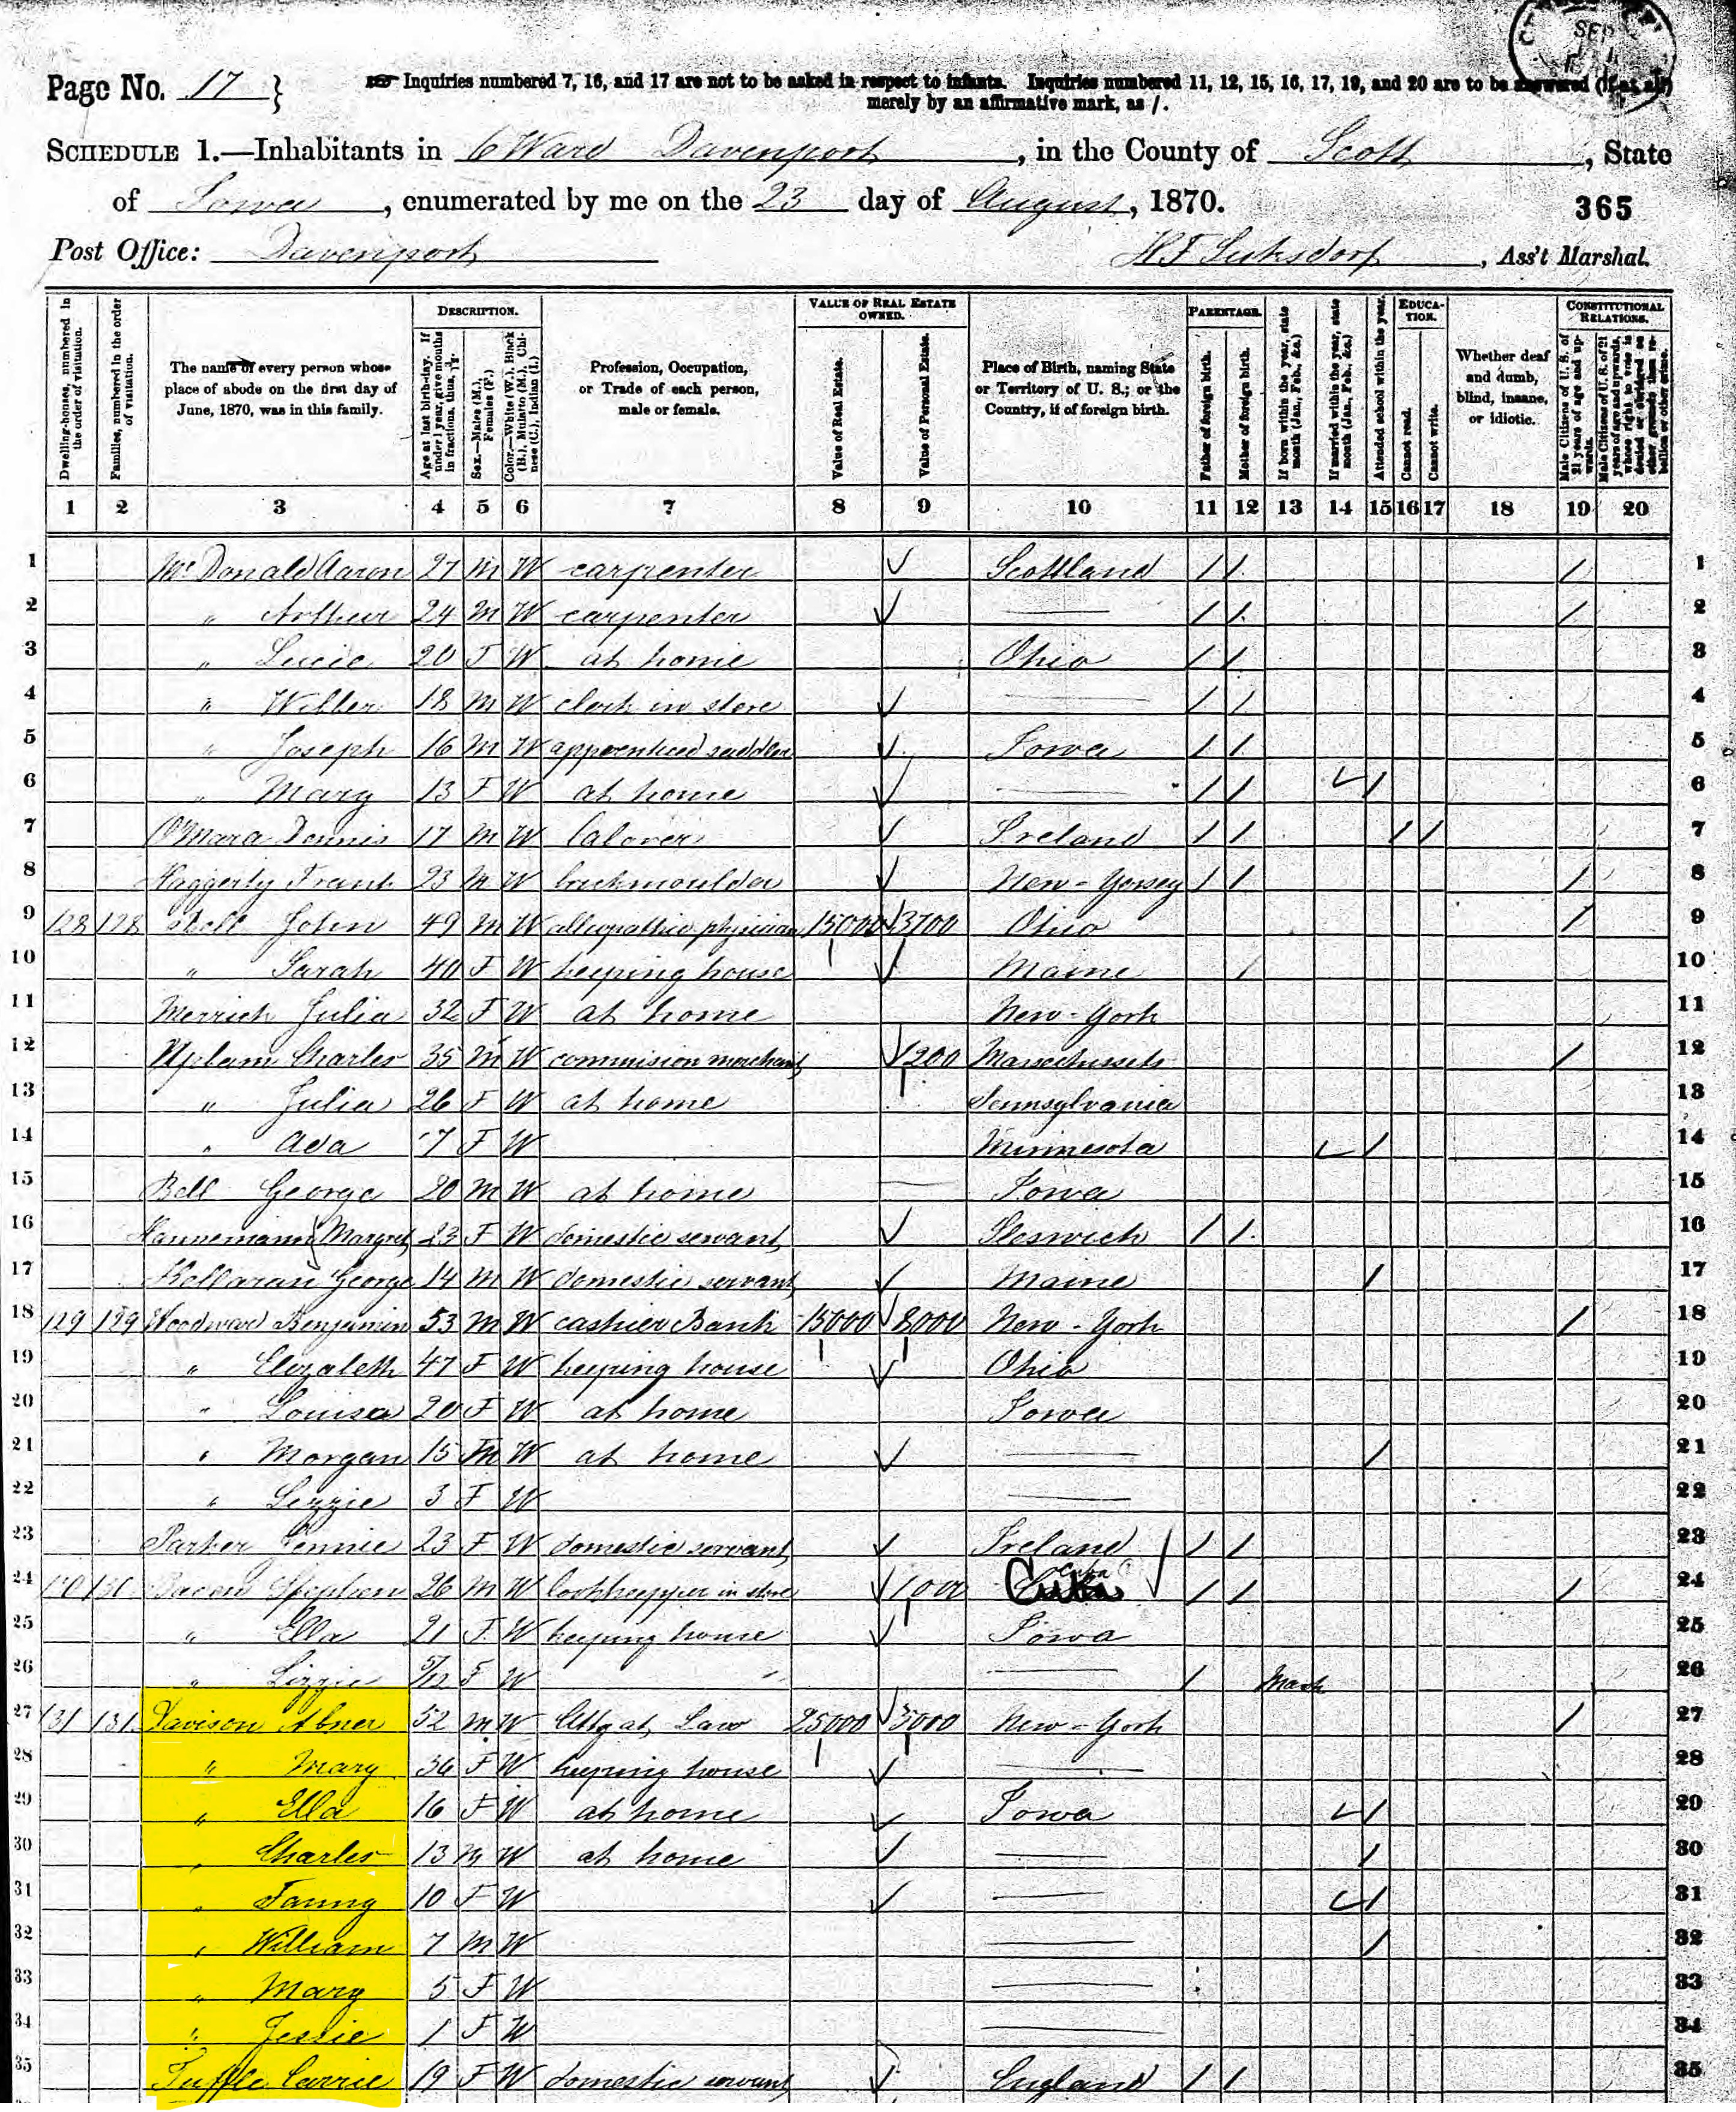 SEP
Page No. 17 } Inquiries numbered 7, 16, and 17 are not to be asked in respect to infants. Inquiries numbered 11, 12, 15, 16, 17, 19, and 20 are to be answered (if at all)
merely by an affirmative mark, as /.
SCHEDULE 1.—Inhabitants in 6 Ward Davenport, in the County of Scott, State
of Iowa, enumerated by me on the 23 day of August, 1870.
365
Post Office: Davenport , Ass't Marshal.
Dwelling-houses, numbered in the order of visitation.
Families, numbered in the order of visitation.
The name of every person whose place of abode on the first day of June, 1870, was in this family.
DESCRIPTION.
Age at last birth-day. If under 1 year, give months in fractions, thus,
Sex.—Males (M.), Females (F.)
Color.—White (W.), Black (B.), Mulatto (M.), Chinese (C.), Indian (I.)
Profession, Occupation, or Trade of each person, male or female.
VALUE OF REAL ESTATE OWNED.
Value of Real Estate.
Value of Personal Estate.
Place of Birth, naming State or Territory of U. S.; or the Country, if of foreign birth.
PARENTAGE.
Father of foreign birth.
Mother of foreign birth.
If born within the year, state month (Jan., Feb., &c.)
If married within the year, state month (Jan., Feb., &c.)
Attended school within the year.
EDUCATION.
Cannot read.
Cannot write.
Whether deaf and dumb, blind, insane, or idiotic.
CONSTITUTIONAL RELATIONS.
Male Citizens of U. S. of 21 years of age and upwards.
Male Citizens of U. S. of 21 years of age and upwards, whose right to vote is denied or abridged on other grounds than rebellion or other crime.
1 2 3 4 5 6 7 8 9 10 11 12 13 14 15 16 17 18 19 20
1 McDonald Aaron 27 M W carpenter Scottland / / / 1
2 " Arthur 24 M W carpenter — / / / 2
3 " Lucie 20 F W at home Ohio / / 3
4 " Wilber 18 M W clerk in store — / / 4
5 " Joseph 16 M W apprenticed saddler Iowa / / 5
6 " Mary 13 F W at home — / / / 6
7 O'Mara Dennis 17 M W laborer Ireland / / / / 7
8 Haggerty Frank 23 M W brickmoulder New-Yersey / / / 8
9 128 128 John 49 M W alleopathic physician 15000 3700 Ohio / 9
10 " Sarah 40 F W keeping house Maine / 10
11 Merrick Julia 32 F W at home New-York 11
12 Upham Charles 35 M W commision merchant 200 Massachussets / 12
13 " Julia 26 F W at home Pennsylvania 13
14 " Ada 7 F W Minnesota / 14
15 Bell George 20 M W at home — Iowa 15
16 Hannemann Margret 23 F W domestic servant Sleswick / / 16
17 George 14 M W domestic servant Maine / 17
18 129 129 Woodward Benjamin 53 M W cashier Bank 15000 8000 New-York / 18
19 " Elizabeth 47 F W keeping house Ohio 19
20 " Louisa 20 F W at home Iowa 20
21 " Morgan 15 M W at home — / 21
22 " Lizzie 3 F W — 22
23 Parker Jennie 23 F W domestic servant Ireland / / 23
24 130 130 Bacon Stephen 26 M W bookkeepper in store 1000 Cuba Cuba / / / 24
25 " Ella 21 F W keeping house Iowa 25
26 " Lizzie 5/12 F W — / Mach 26
27 131 131 Davison Abner 52 M W Atty at Law 25000 5000 New-York / 27
28 " Mary 36 F W keeping house — 28
29 " Ella 16 F W at home Iowa / 29
30 " Charles 13 M W at home — / 30
31 " Fanny 10 F W — / 31
32 " William 7 M W — / 32
33 " Mary 5 F W — 33
34 " Jessie 1 F W — 34
35 Carrie 19 F W domestic servant England / / 35